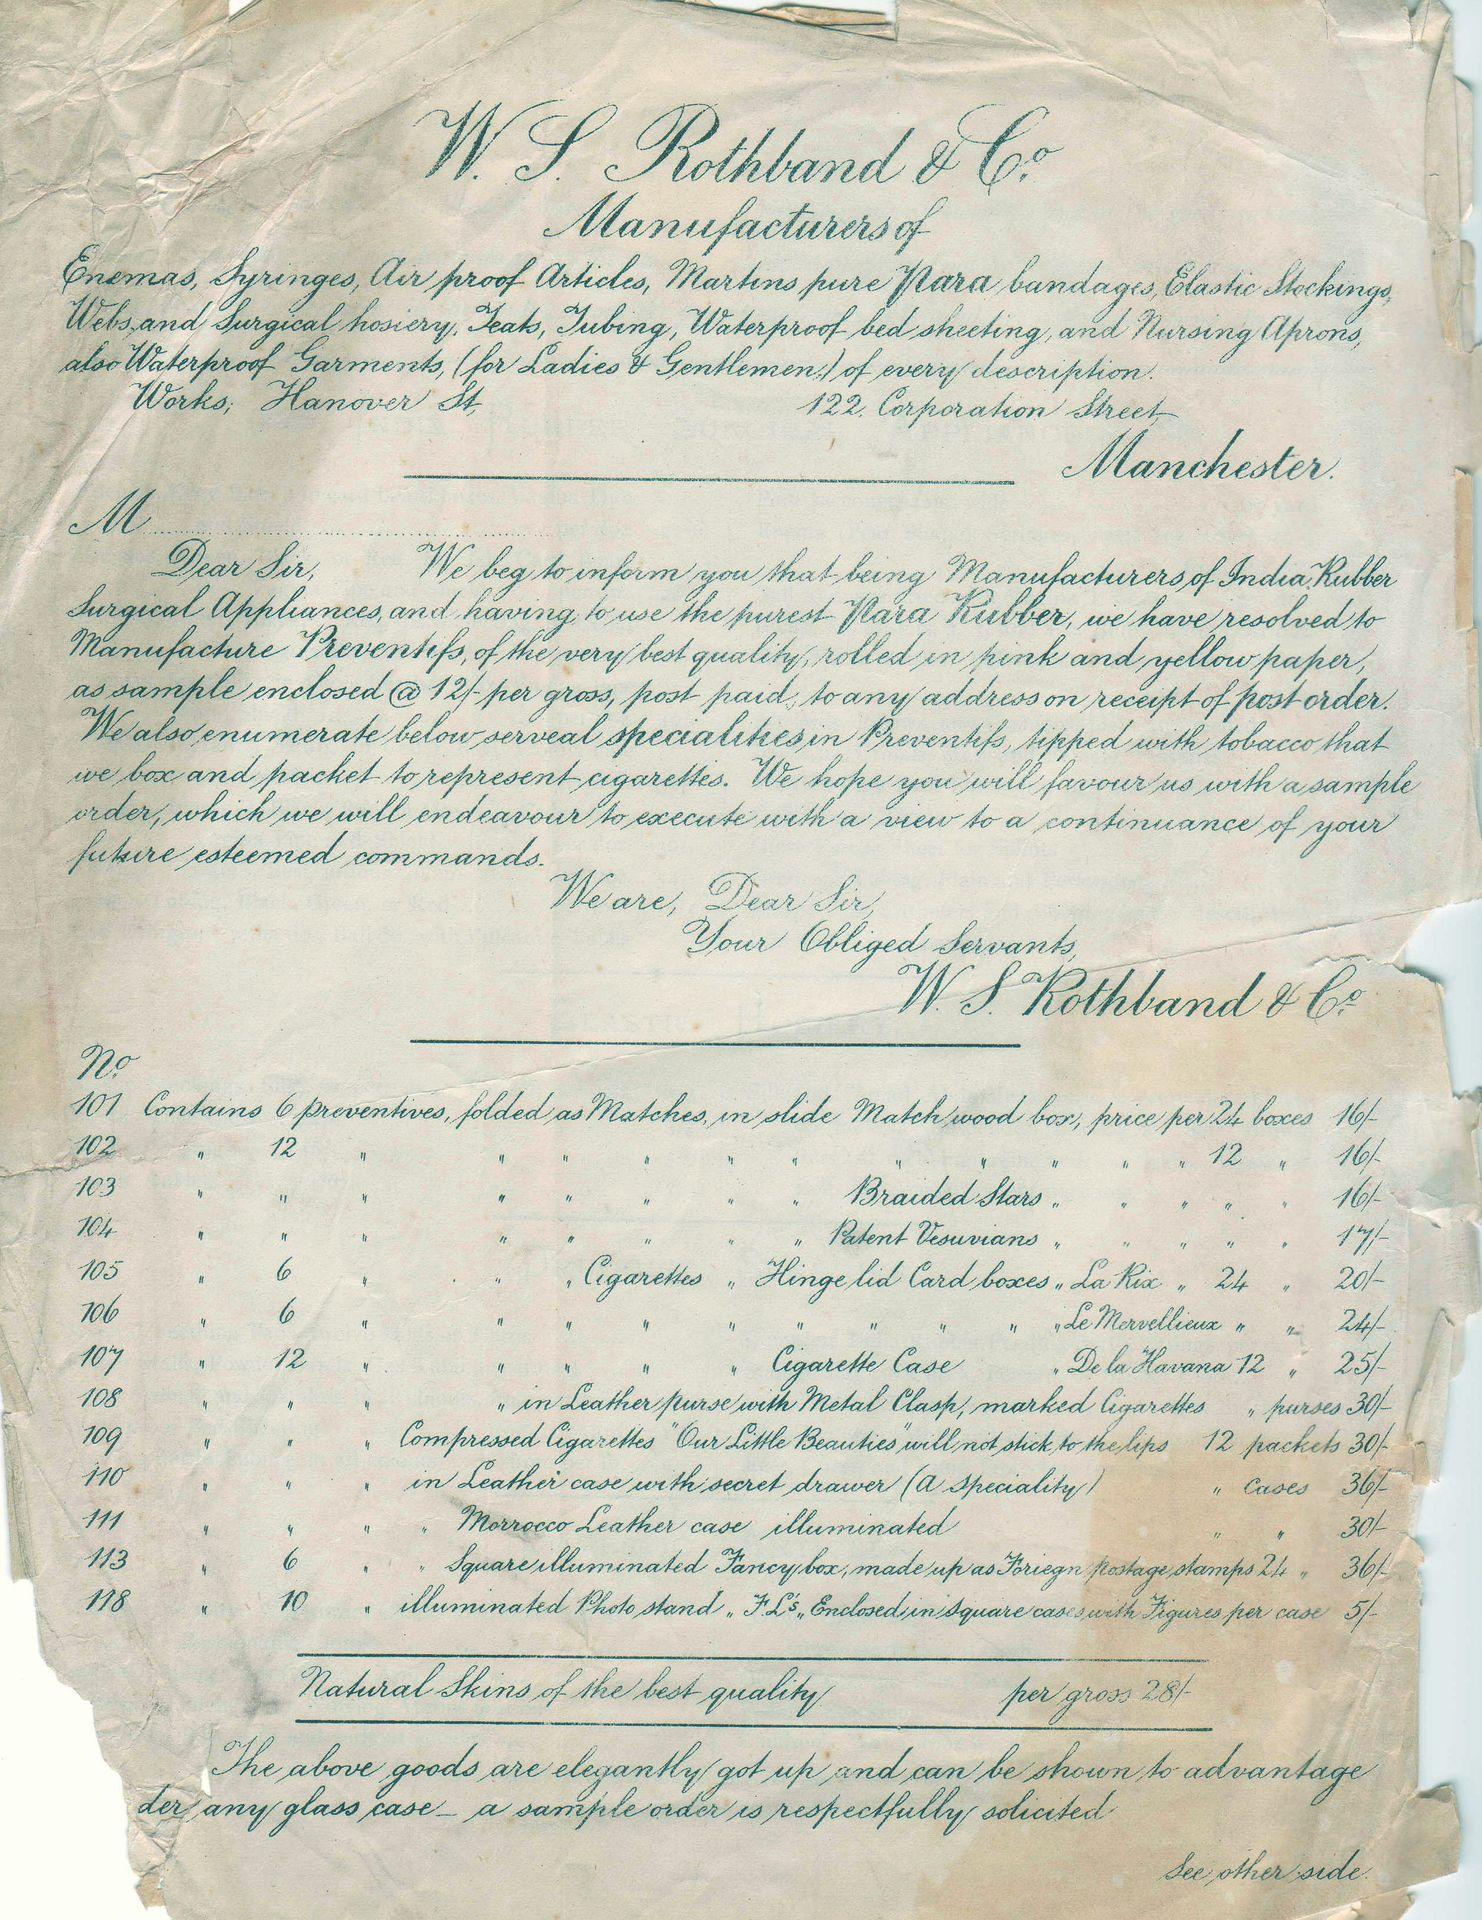 W. S. Rothband & Co.
Manufacturers of
Enemas, Syringes, Air proof Articles, Martins pure Para bandages, Elastic Stockings,
Webs, and Surgical hosiery, Teats, Tubing, Waterproof bed sheeting, and Nursing Aprons,
also Waterproof Garments, (for Ladies & Gentlemen,) of every description.
Works; Hanover St, 122. Corporation Street,
Manchester.
M
Dear Sir, We beg to inform you that being Manufacturers of India Rubber
Surgical Appliances, and having to use the purest Para Rubber, we have resolved to
Manufacture Preventifs, of the very best quality, rolled in pink and yellow paper,
as sample enclosed @ 12/- per gross, post paid, to any address on receipt of post order.
We also enumerate below serveal specialities in Preventifs, tipped with tobacco that
we box and packet to represent cigarettes. We hope you will favour us with a sample
order, which we will endeavour to execute with a view to a continuance of your
future esteemed commands.
We are, Dear Sir,
Your Obliged Servants,
W. S. Rothband & Co.
No.
101 Contains 6 preventives, folded as Matches, in slide Match wood box, price per 24 boxes 16/-
102 " 12 " " " " " " " " " " " 12 " 16/-
103 " " " " " " " " Braided Stars " " " " " 16/-
104 " " " " " " " " Patent Vesuvians " " " " " 17/-
105 " 6 " " " Cigarettes " Hinge lid Card boxes " La Rix " 24 " 20/-
106 " 6 " " " " " " " " " " Le Mervellieux " " 24/-
107 " 12 " " " " " Cigarette Case " De la Havana 12 " 25/-
108 " " " " in Leather purse with Metal Clasp, marked Cigarettes " purses 30/-
109 " " " Compressed Cigarettes "Our Little Beauties" will not stick to the lips 12 packets 30/-
110 " " " in Leather case with secret drawer (a speciality) " cases 36/-
111 " " " " Morrocco Leather case illuminated " " 30/-
113 " 6 " " Square illuminated Fancy box, made up as Foriegn postage stamps 24 " 36/-
118 " 10 " illuminated Photo stand " F.L's " Enclosed in square cases with Figures per case 5/-
Natural Skins of the best quality per gross 28/-
The above goods are elegantly got up and can be shown to advantage
der any glass case - a sample order is respectfully solicited
See other side.